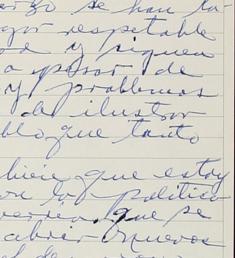 se han lo-
gar respetable
y siguen
a pesar de
y problemas
de ilustrar
blo que tanto
bien que estoy
la politica
que se
abrir nuevos